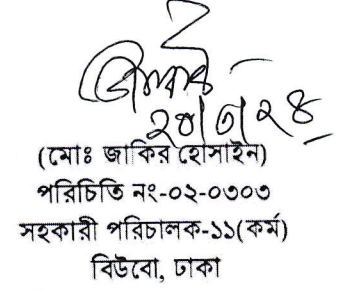 (মোঃ জাকির হোসাইন)
পরিচিতি নং-০২-০৩০৩
সহকারী পরিচালক-১১(কর্ম)
বিউবো, ঢাকা